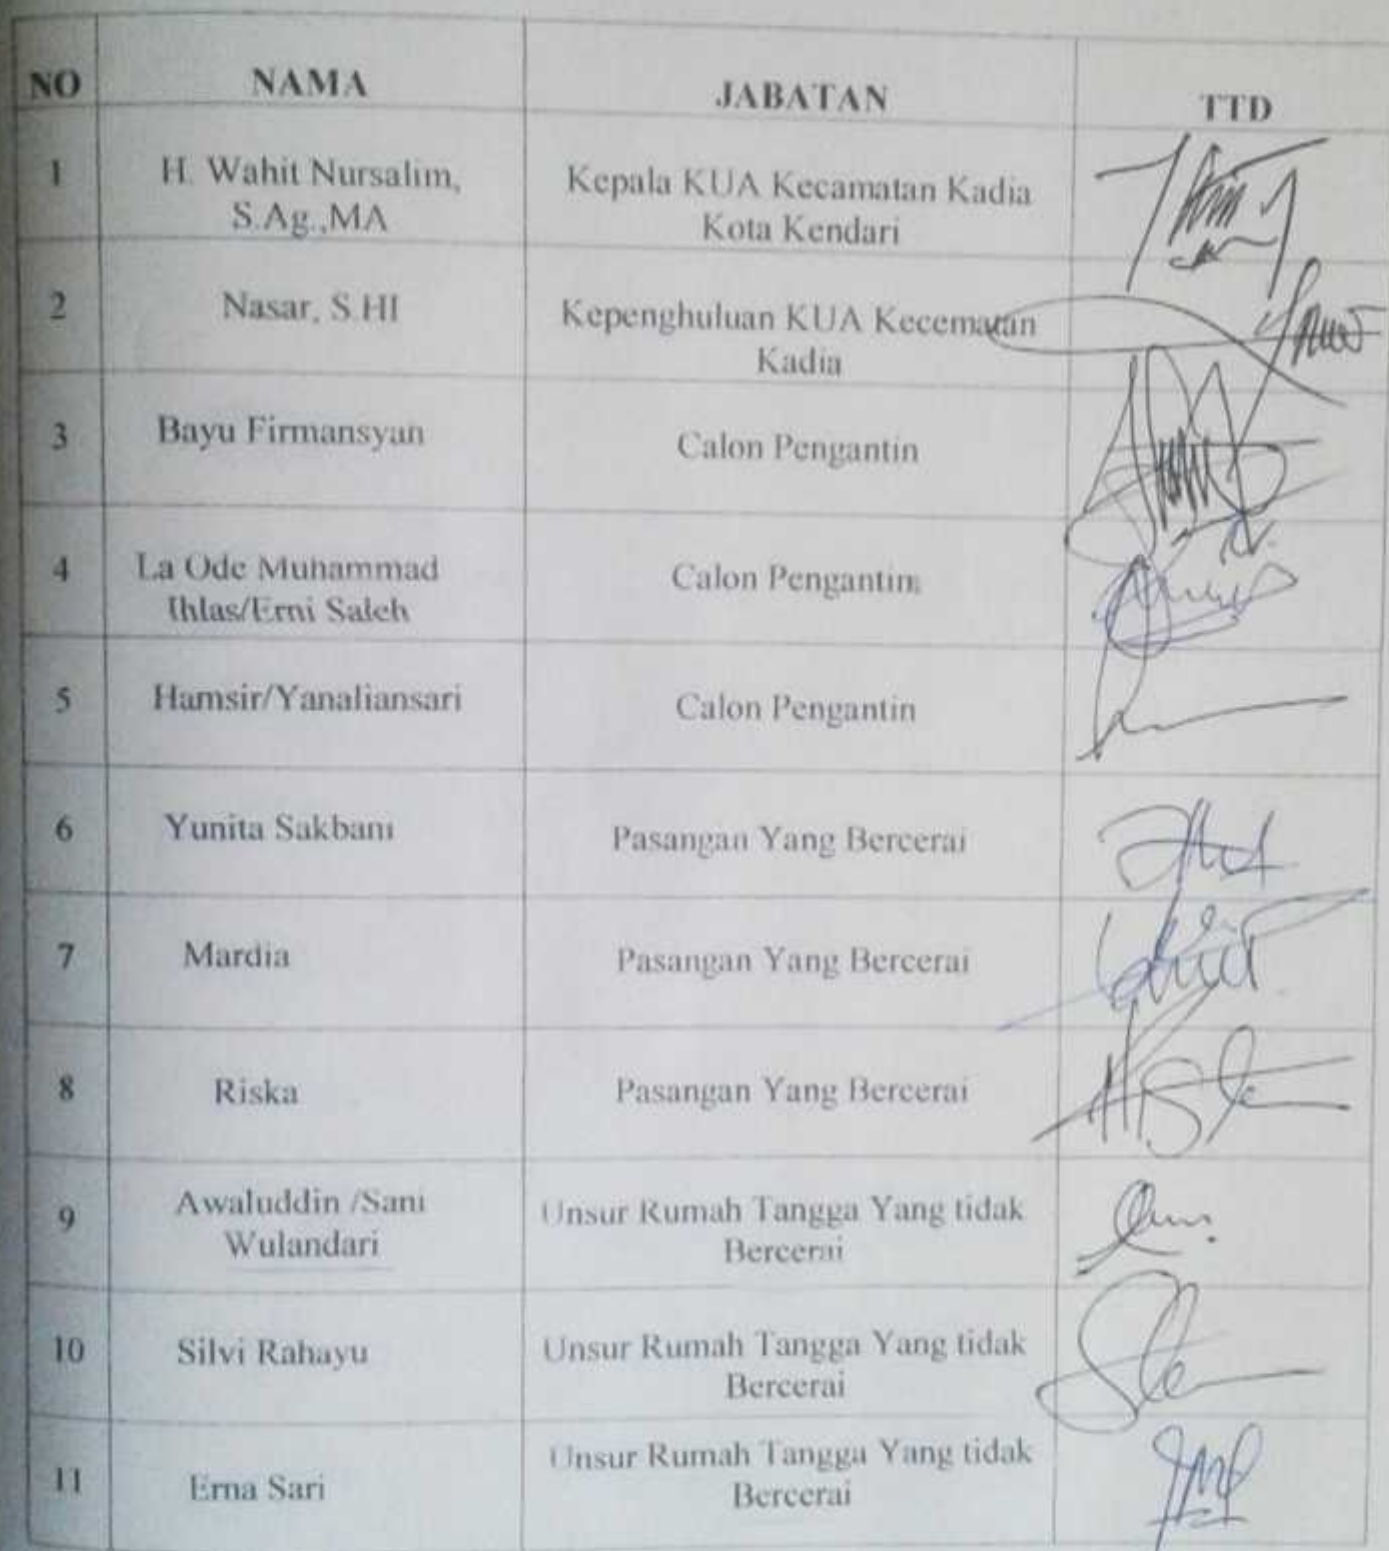 NO NAMA JABATAN TTD
1 H. Wahit Nursalim, Kepala KUA Kecamatan Kadia
S.Ag.,MA Kota Kendari
2 Nasar, S.HI Kepenghuluan KUA Kecematan
Kadia
3 Bayu Firmansyan Calon Pengantin
4 La Ode Muhammad Calon Pengantin
Ihlas/Erni Saleh
5 Hamsir/Yanaliansari Calon Pengantin
6 Yunita Sakbani Pasangan Yang Bercerai
7 Mardia Pasangan Yang Bercerai
8 Riska Pasangan Yang Bercerai
9 Awaluddin /Sani Unsur Rumah Tangga Yang tidak
Wulandari Bercerai
10 Silvi Rahayu Unsur Rumah Tangga Yang tidak
Bercerai
11 Erna Sari Unsur Rumah Tangga Yang tidak
Bercerai